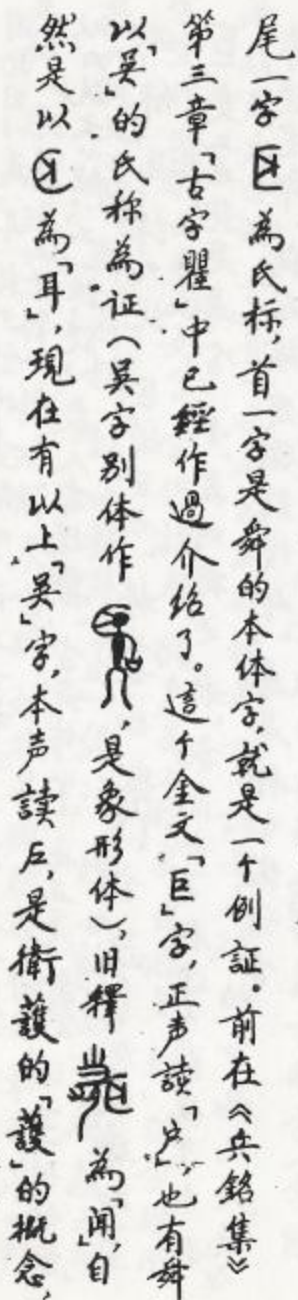 尾一字為氏标，首一字是舜的本体字，就是一个例証。前在《兵銘集》
第三章「古字瞿」中已經作過介绍了。這个金文「巨」字，正声讀「户」，也有舜
以「吴」的氏称為证（吴字别体作，是象形体），旧釋為「闻」，自
然是以為「耳」，現在有以上「吴」字，本声讀户，是衛護的「護」的概念，